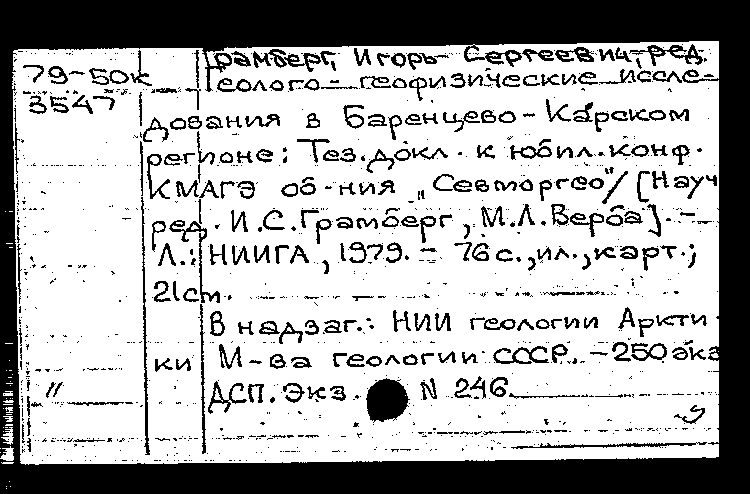 Грамберг, Игорь Сергеевич, ред.
79-50к
Геолого-геофизические иссле-
3547
дования в Баренцево-Карском
регионе: Тез. докл. к юбил. конф.
КМАГЭ об-ния „Севморгео"/ [Науч
ред. И.С. Грамберг, М.Л. Верба]. –
Л.: НИИГА, 1979. – 76 с., ил., карт.;
21 см.
В надзаг.: НИИ геологии Аркти
ки М-ва геологии СССР. – 250 экз
ДСП. Экз. N 246.